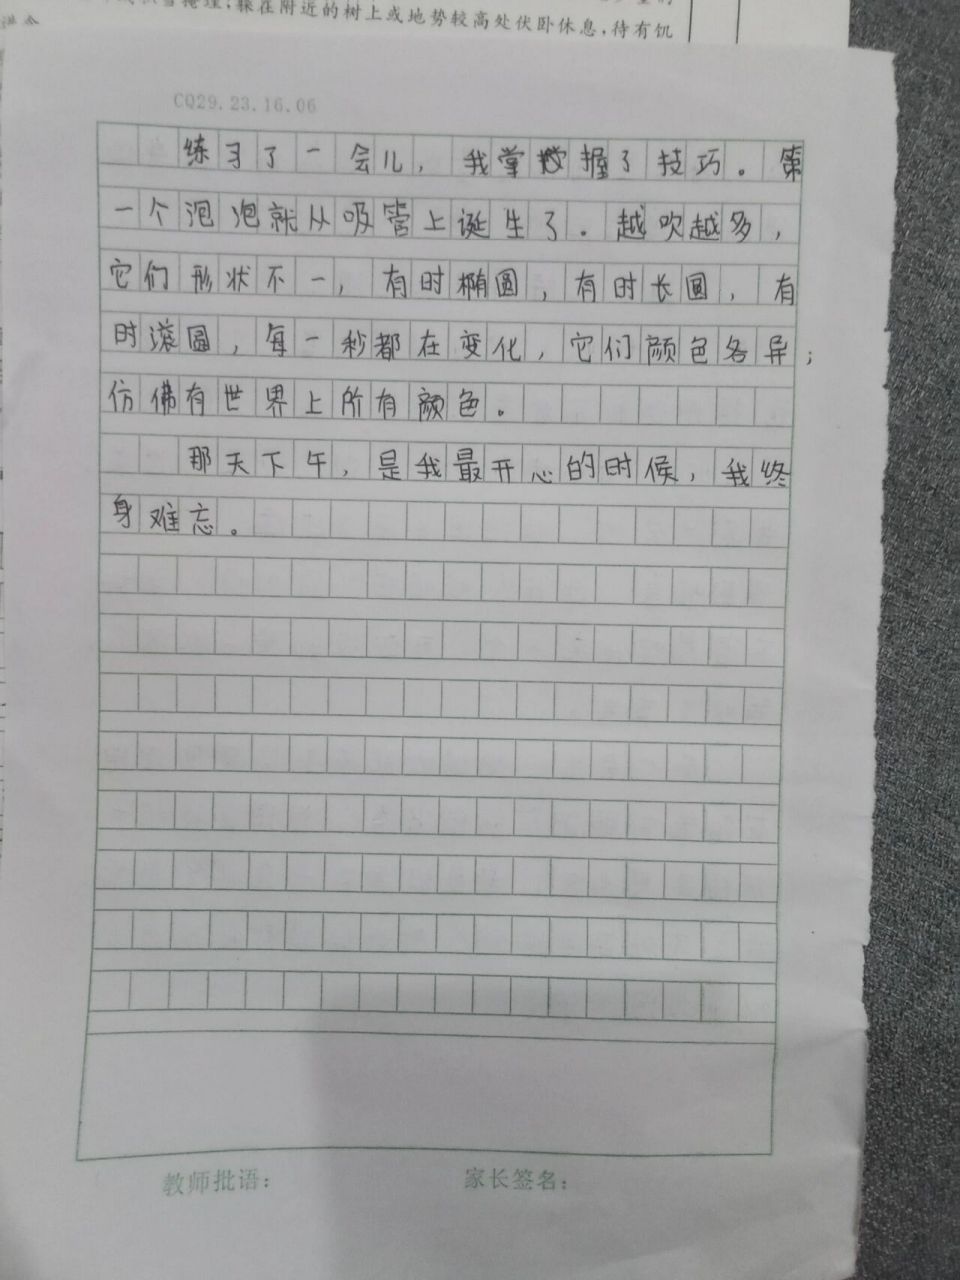 躲在附近的树上或地势较高处伏卧休息，待有饥
CQ29.23.16.06
练习了一会儿，我掌握了技巧。第
一个泡泡就从吸管上诞生了。越吹越多，
它们形状不一，有时椭圆，有时长圆，有
时滚圆，每一秒都在变化，它们颜色各异；
仿佛有世界上所有颜色。
那天下午，是我最开心的时候，我终
身难忘。
教师批语：
家长签名：